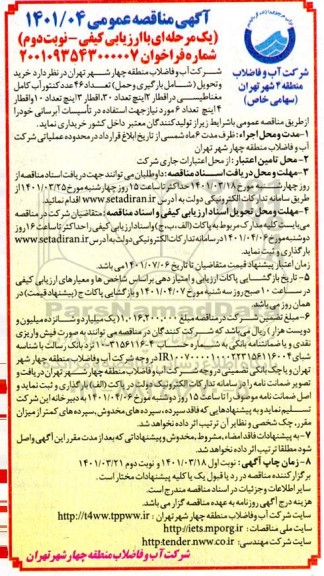 آگهی مناقصه عمومی ۱۴۰۱/۰۴
(یک مرحله‌ای با ارزیابی کیفی – نوبت دوم)
شماره فراخوان ۲۰۰۱۰۹۳۵۴۳۰۰۰۰۰۷
شرکت آب و فاضلاب
منطقه ۴ شهر تهران
(سهامی خاص)
شرکت آب و فاضلاب منطقه چهار شهر تهران در نظر دارد خرید
و تحویل (شامل بارگیری و حمل) تعداد ۴۶ عدد کنتور آب کامل
مغناطیسی در اقطار ۲ اینچ تعداد ۳۰، اقطار ۳ اینچ تعداد ۱۰ و اقطار
۴ اینچ تعداد ۶ مورد نیاز جهت استفاده در تأسیسات آبرسانی خود را
از طریق مناقصه عمومی با شرایط زیر از تولیدکنندگان معتبر داخل کشور خریداری نماید.
۱– مدت و محل اجراء: ظرف مدت ۶ ماه شمسی از تاریخ ابلاغ قرارداد در محدوده عملیاتی شرکت
۲– محل تامین اعتبار: از محل اعتبارات جاری شرکت
۳– مهلت و محل دریافت اسناد مناقصه: داوطلبان می توانند جهت دریافت اسناد مناقصه از
روز چهارشنبه مورخ ۱۴۰۱/۰۳/۱۸ حداکثر تا ساعت ۱۵ روز چهارشنبه مورخ ۱۴۰۱/۰۳/۲۵ از
طریق سامانه تدارکات الکترونیکی دولت به آدرس www.setadiran.ir اقدام نمائید.
۴– مهلت و محل تحویل اسناد ارزیابی کیفی و اسناد مناقصه: متقاضیان شرکت در مناقصه
می‌بایست کلیه مدارک مربوط به پاکات (الف، ب، ج) و اسناد ارزیابی کیفی را حداکثر تا ساعت ۱۶ روز
دوشنبه مورخ ۱۴۰۱/۰۴/۰۶ در سامانه تدارکات الکترونیکی دولت به آدرس www.setadiran.ir
بارگذاری و ثبت نماید.
زمان اعتبار پیشنهاد قیمت متقاضیان تا تاریخ ۱۴۰۱/۰۷/۰۶ می باشد.
۵– تاریخ بازگشایی پاکات ارزیابی و امتیازدهی براساس شاخص ها و معیارهای ارزیابی کیفی
در ساعت ۱۰ صبح روز سه شنبه مورخ ۱۴۰۱/۰۴/۰۷ و بازگشایی پاکات ج (پیشنهاد قیمت) در
همان روز می باشد.
شرکت آب و فاضلاب منطقه چهار شهر تهران دریافت و
تصویر ضمانت نامه را در سامانه تدارکات الکترونیک دولت در پاکت (الف) بارگذاری و ثبت نماید و
اصل ضمانت نامه موصوف را تا ساعت ۱۵ روز دوشنبه مورخ ۱۴۰۱/۰۴/۰۶ به دبیرخانه این شرکت
تسلیم نماید و به پیشنهادهایی که فاقد سپرده، سپرده های مخدوش، سپرده های کمتر از میزان
مقرر، چک شخصی و نظایر آن ترتیب اثر داده نخواهد شد.
۷– به پیشنهادات فاقد امضاء، مشروط، مخدوش و پیشنهاداتی که بعد از مدت مقرر این آگهی واصل
شود مطلقا ترتیب اثر داده نخواهد شد.
۸– زمان چاپ آگهی: نوبت اول ۱۴۰۱/۰۳/۱۸ و نوبت دوم ۱۴۰۱/۰۳/۲۱
برگزارکننده مناقصه در رد یا قبول یک یا کلیه پیشنهادات مختار است.
سایر اطلاعات و جزئیات در اسناد مناقصه مندرج است.
هزینه درج آگهی روزنامه به عهده مناقصه گزار می باشد.
سایت شرکت آب و فاضلاب منطقه چهار شهر تهران: http://t4ww.tppww.ir
سایت ملی مناقصات: http://iets.mporg.ir
سایت شرکت مهندسی: http:tender.nww.co.ir
شرکت آب و فاضلاب منطقه چهار شهر تهران